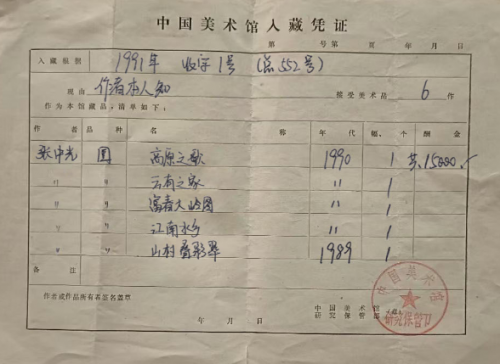 中国美术馆入藏凭证
第 号第 页 年 月 日
入藏根据 1991年 收字1号 (总552号)
现由 作者本人知 接受美术品 6 件
作为本馆藏品,清单如下:
作者 品种 名称 年代 幅、个 酬金
张中光 国 高原之歌 1990 1 共15000.
〃 〃 云南之家 〃 1
〃 〃 富春大岭图 〃 1
〃 〃 江南水乡 〃 1
〃 〃 山村叠彩翠 1989 1
备注
作者或作品所有者签名盖章
中国美术馆
研究保管部
年 月 日
中国美术馆
研究保管部